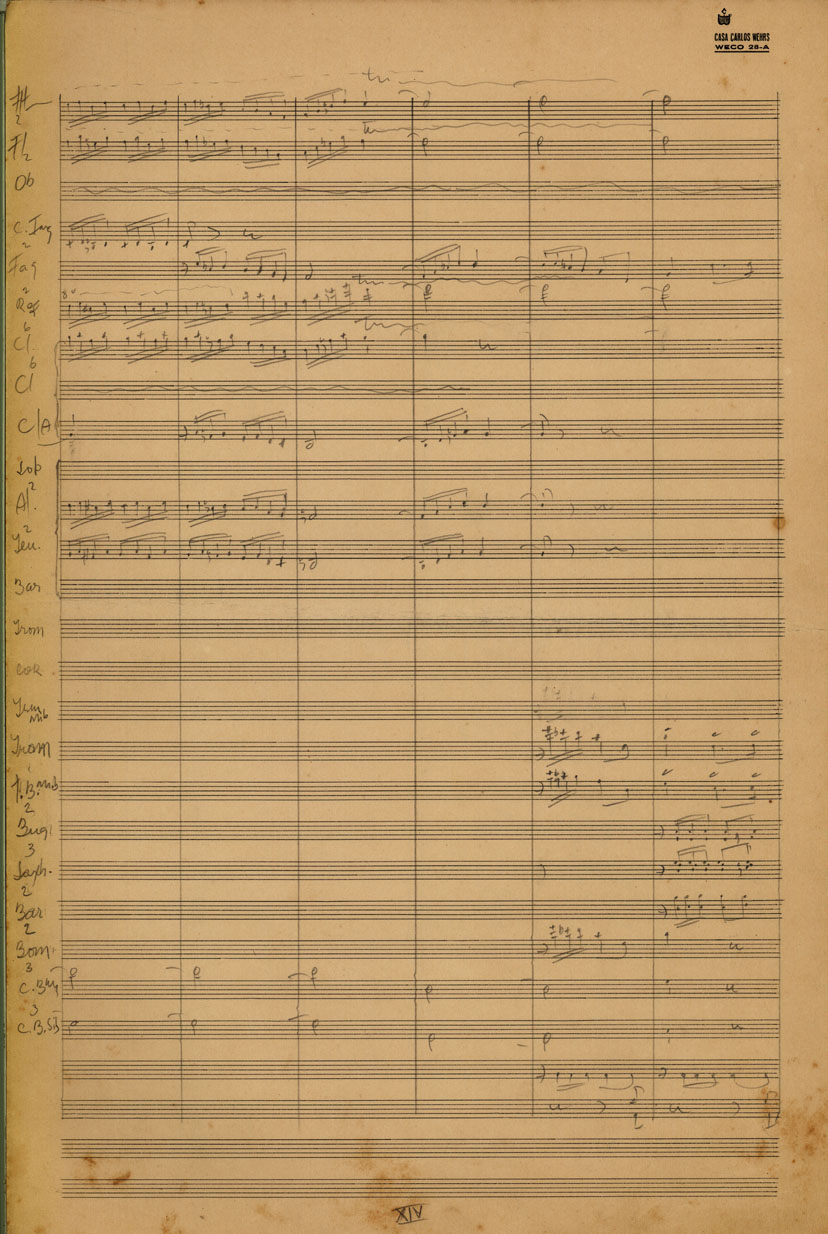 CASA CARLOS WEHRS
WECO 28-A
2
Fl
2
Ob
C. Fag
2
Fag
2
8ª
Req
6
Cl.
6
Cl
Cl A
Sop
2
Al.
2
Ten.
Bar
Trom
Cor
Trom
Mib
Trom
2
Bug
3
Saxh.
2
Bar
2
Bom.
3
C. B Mib
3
C. B. SiB
XIV